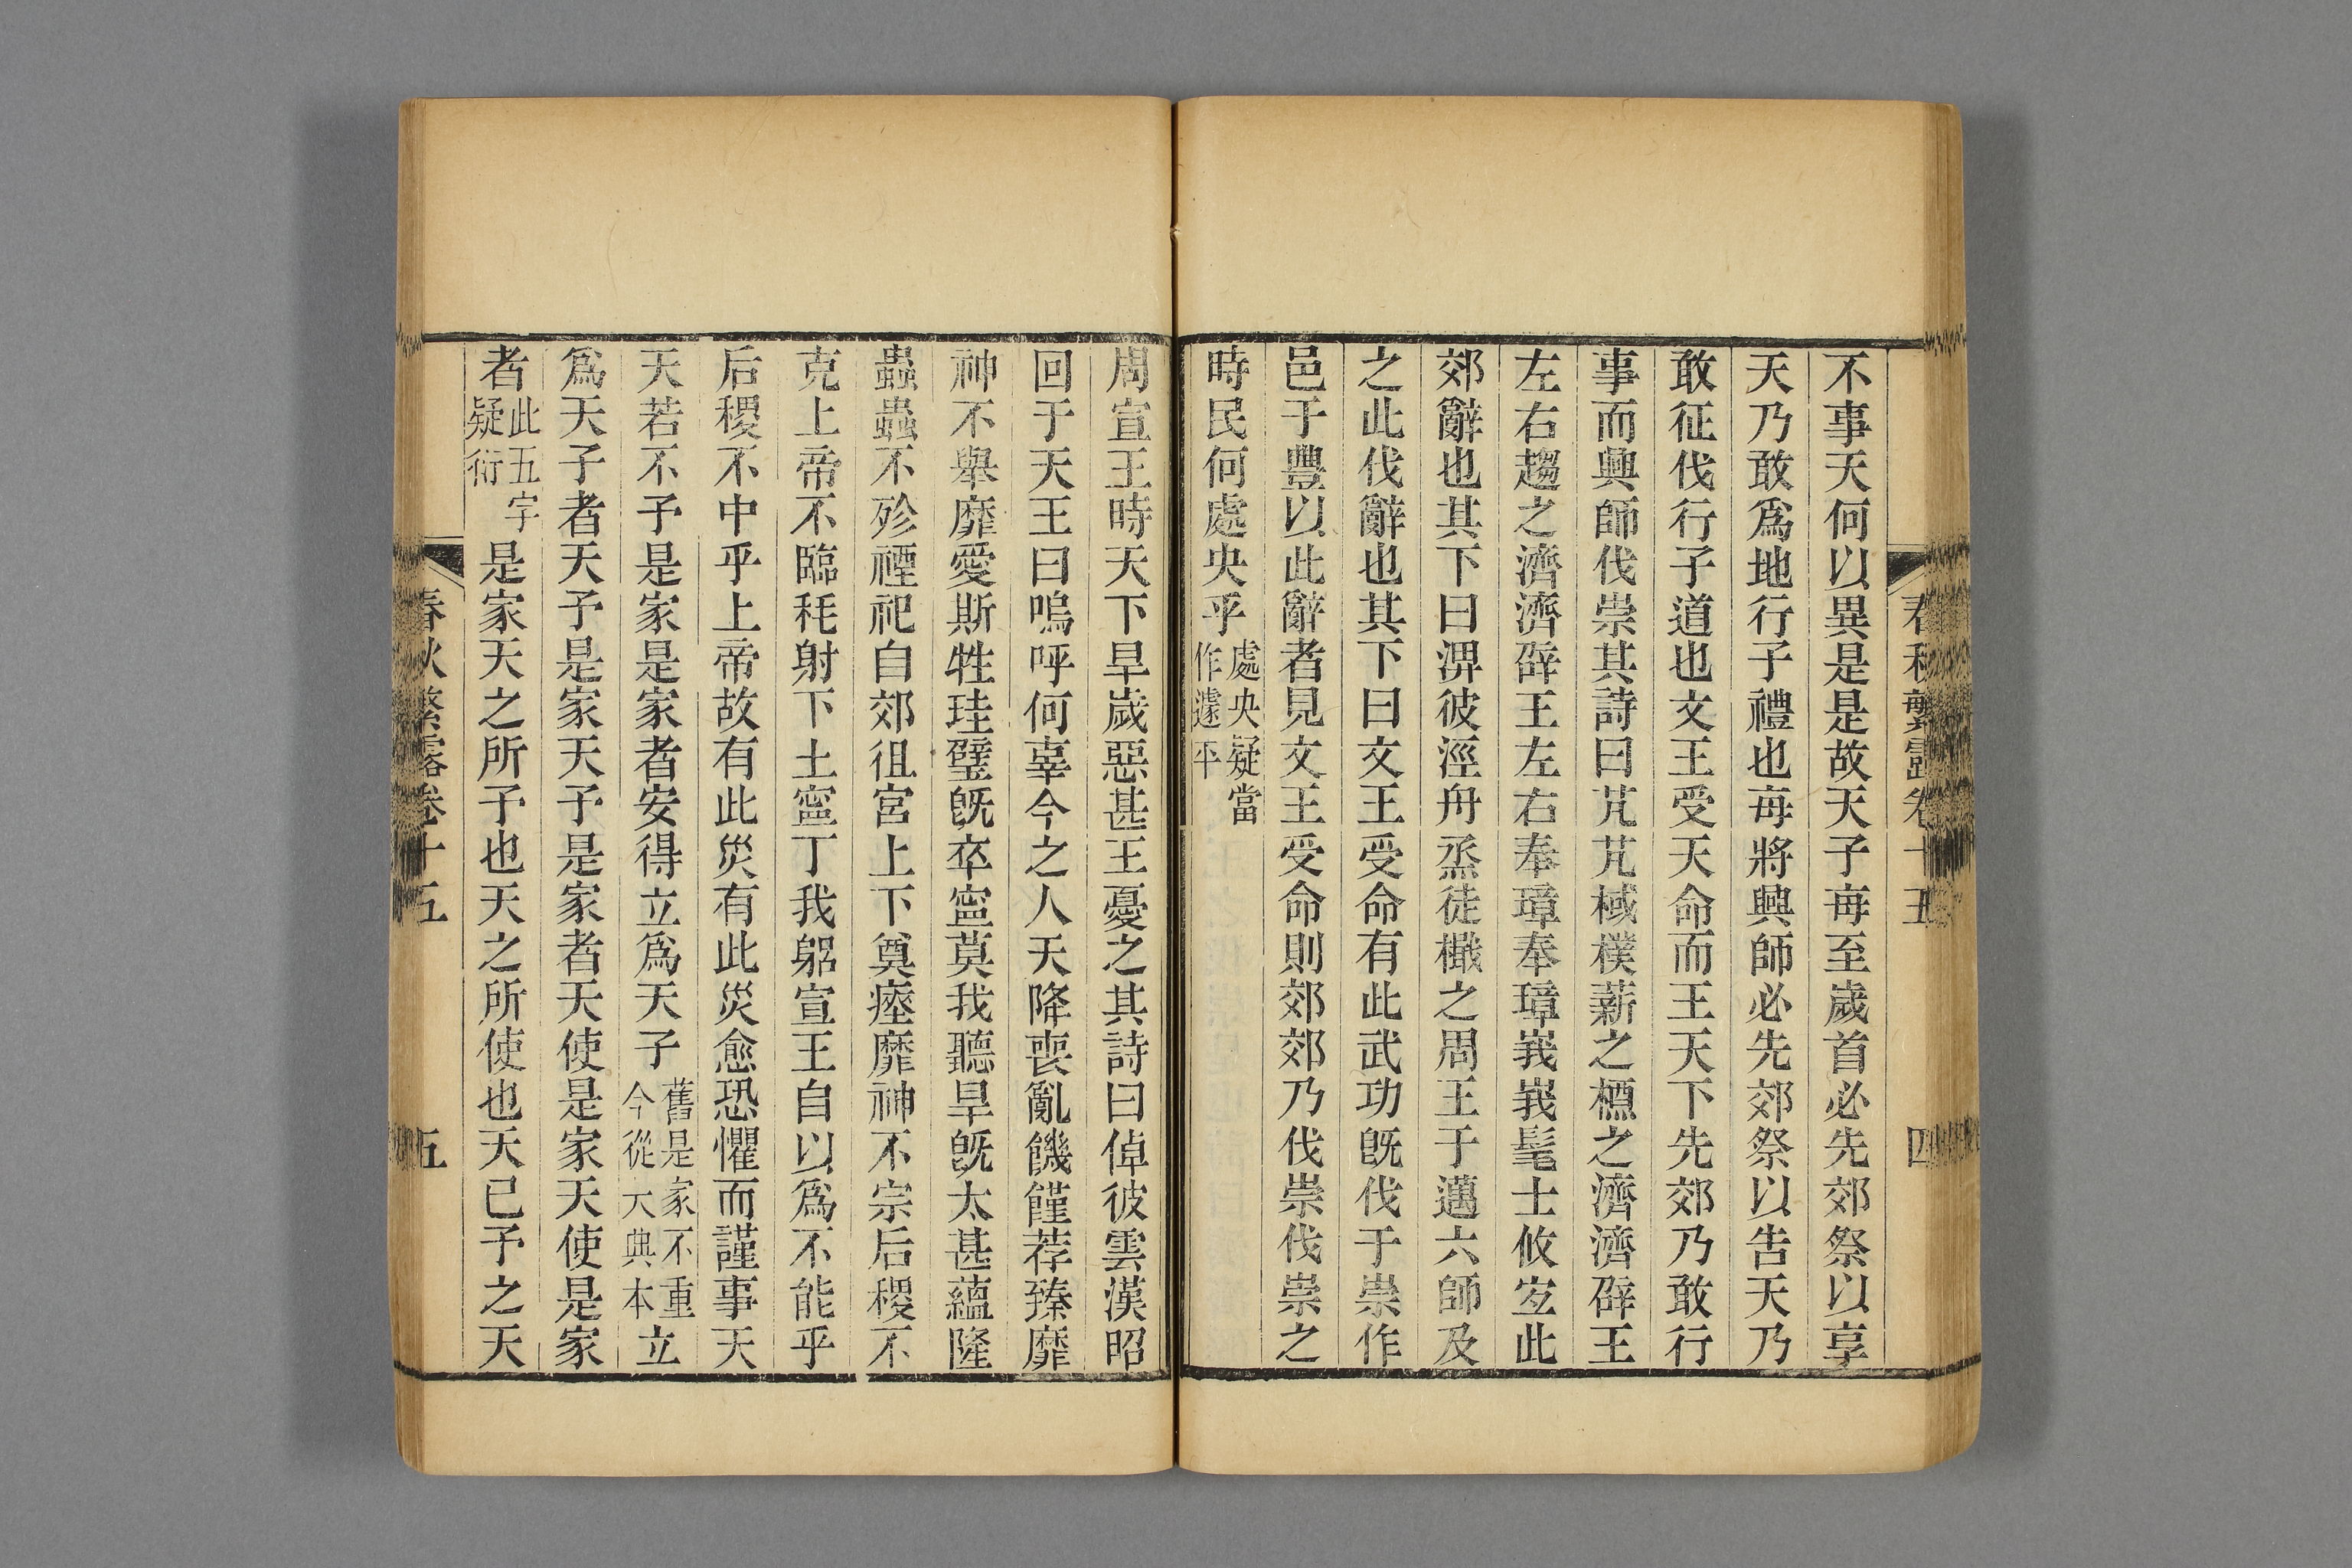 春秋繁露卷十五 四
不事天何以異是是故天子每至歲首必先郊祭以享
天乃敢爲地行子禮也每將興師必先郊祭以告天乃
敢征伐行子道也文王受天命而王天下先郊乃敢行
事而興師伐崇其詩曰芃芃棫樸薪之槱之濟濟辟王
左右趨之濟濟辟王左右奉璋奉璋峩峩髦士攸宜此
郊辭也其下曰淠彼涇舟烝徒檝之周王于邁六師及
之此伐辭也其下曰文王受命有此武功旣伐于崇作
邑于豐以此辭者見文王受命則郊郊乃伐崇伐崇之
時民何處央乎處央疑當作遽平
周宣王時天下旱歲惡甚王憂之其詩曰倬彼雲漢昭
回于天王曰嗚呼何辜今之人天降喪亂饑饉荐臻靡
神不舉靡愛斯牲珪璧旣卒寧莫我聽旱旣太甚蘊隆
蟲蟲不殄禋祀自郊徂宮上下奠瘞靡神不宗后稷不
克上帝不臨耗射下土寧丁我躬宣王自以爲不能乎
后稷不中乎上帝故有此災有此災愈恐懼而謹事天
天若不予是家是家者安得立爲天子舊是家不重今從大典本立
爲天子者天予是家天予是家者天使是家天使是家
者此五字疑衍是家天之所予也天之所使也天已予之天
春秋繁露卷十五 五